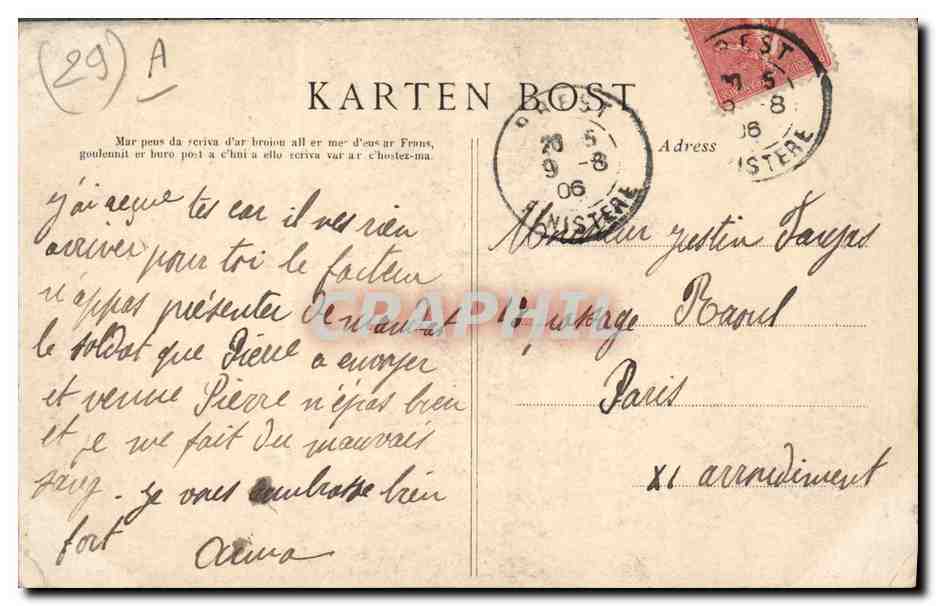 (29) A
KARTEN BOST
Mar peus da scriva d'ar broiou all er mez d'eus ar Frans,
goulennit er buro post a c'hui a ello scriva var ar c'hostez-ma.
Adress
BREST
20 5
9 -8
06
FINISTERE
BREST
5
-8
06
FINISTERE
j'ai reçue tes car il nes rien
arriver pour toi le facteur
n'appas présenter de mandat
le soldat que Pierre a envoyer
et venue Pierre n'épas bien
et je me fait du mauvais
sang. je vous embrasse bien
fort
Anna
Monsieur Justin Faujas
18 passage Raoul
Paris
XI arrondiment
CRAPHIL